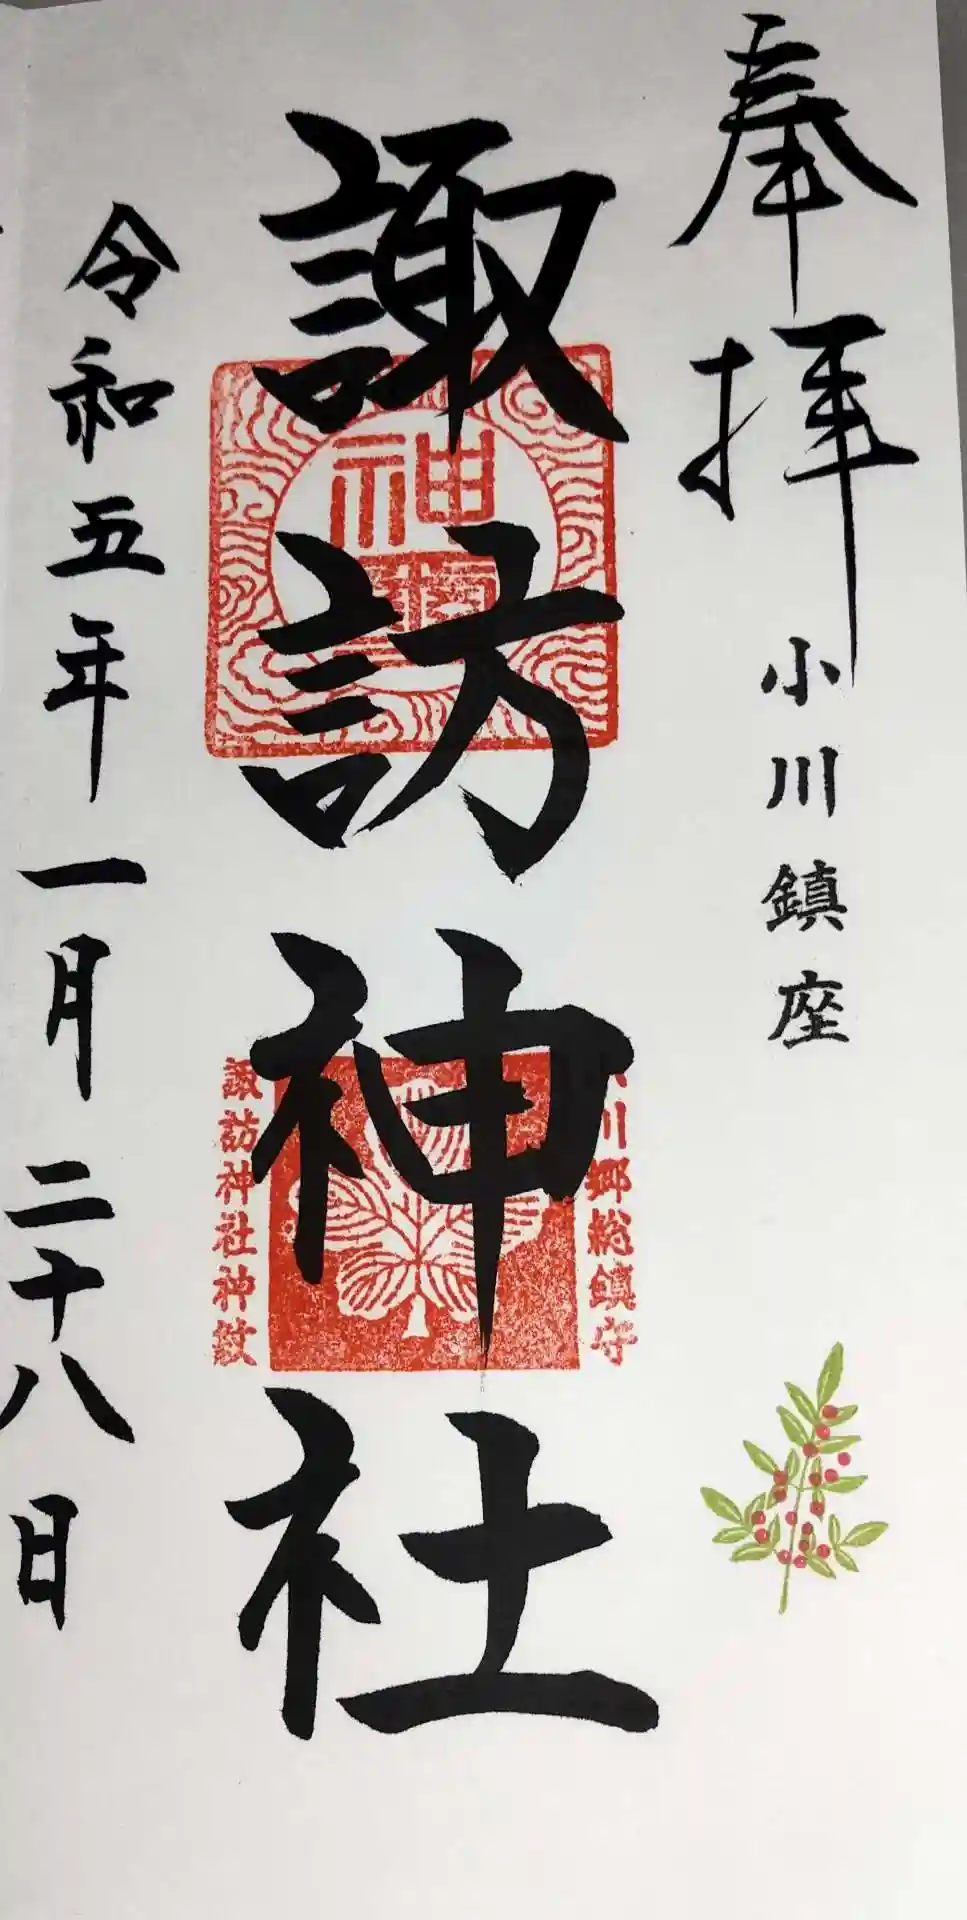 奉拝
小川鎮座
川郷総鎮守
諏訪神社
神
諏訪神社神紋
令和五年一月二十八日